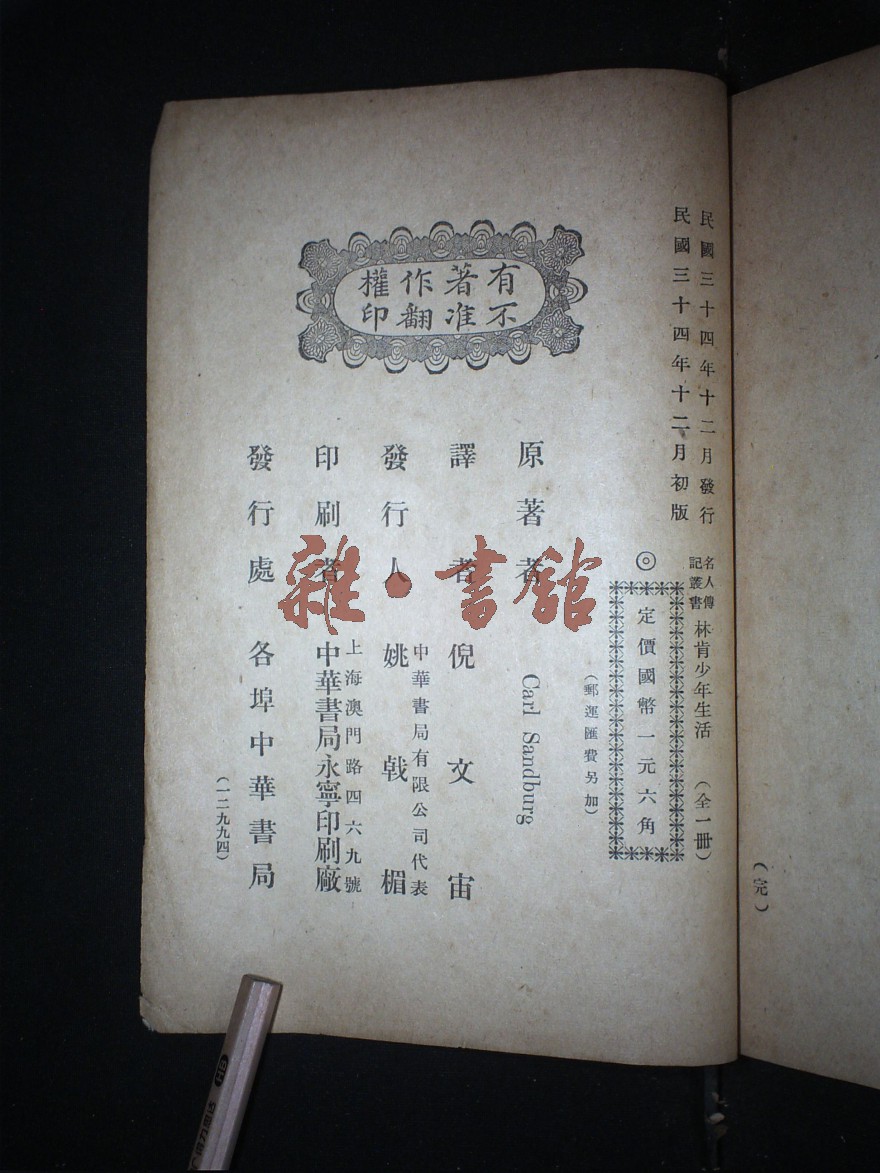 民國三十四年十二月發行
民國三十四年十二月初版
名人傳記叢書 林肯少年生活 (全一冊)
◎定價國幣一元六角
(郵運匯費另加)
有著作權
不准翻印
原著者 Carl Sandburg
譯者 倪文宙
中華書局有限公司代表
發行人 姚戟楣
上海澳門路四六九號
印刷者 中華書局永寧印刷廠
發行處 各埠中華書局
(一二九九四)
(完)
雜·書館
HB